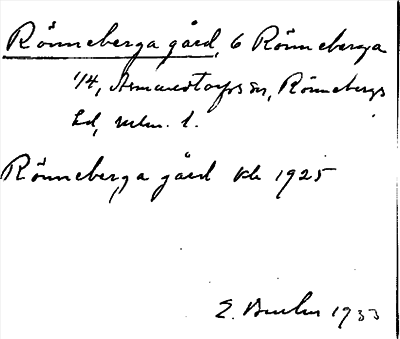 Rönneberga gård, 6 Rönneberga
1/4, Asmundtorps sn, Rönnebergs
hd, Malm. l.
Rönneberga gård kh 1925
E. 1933